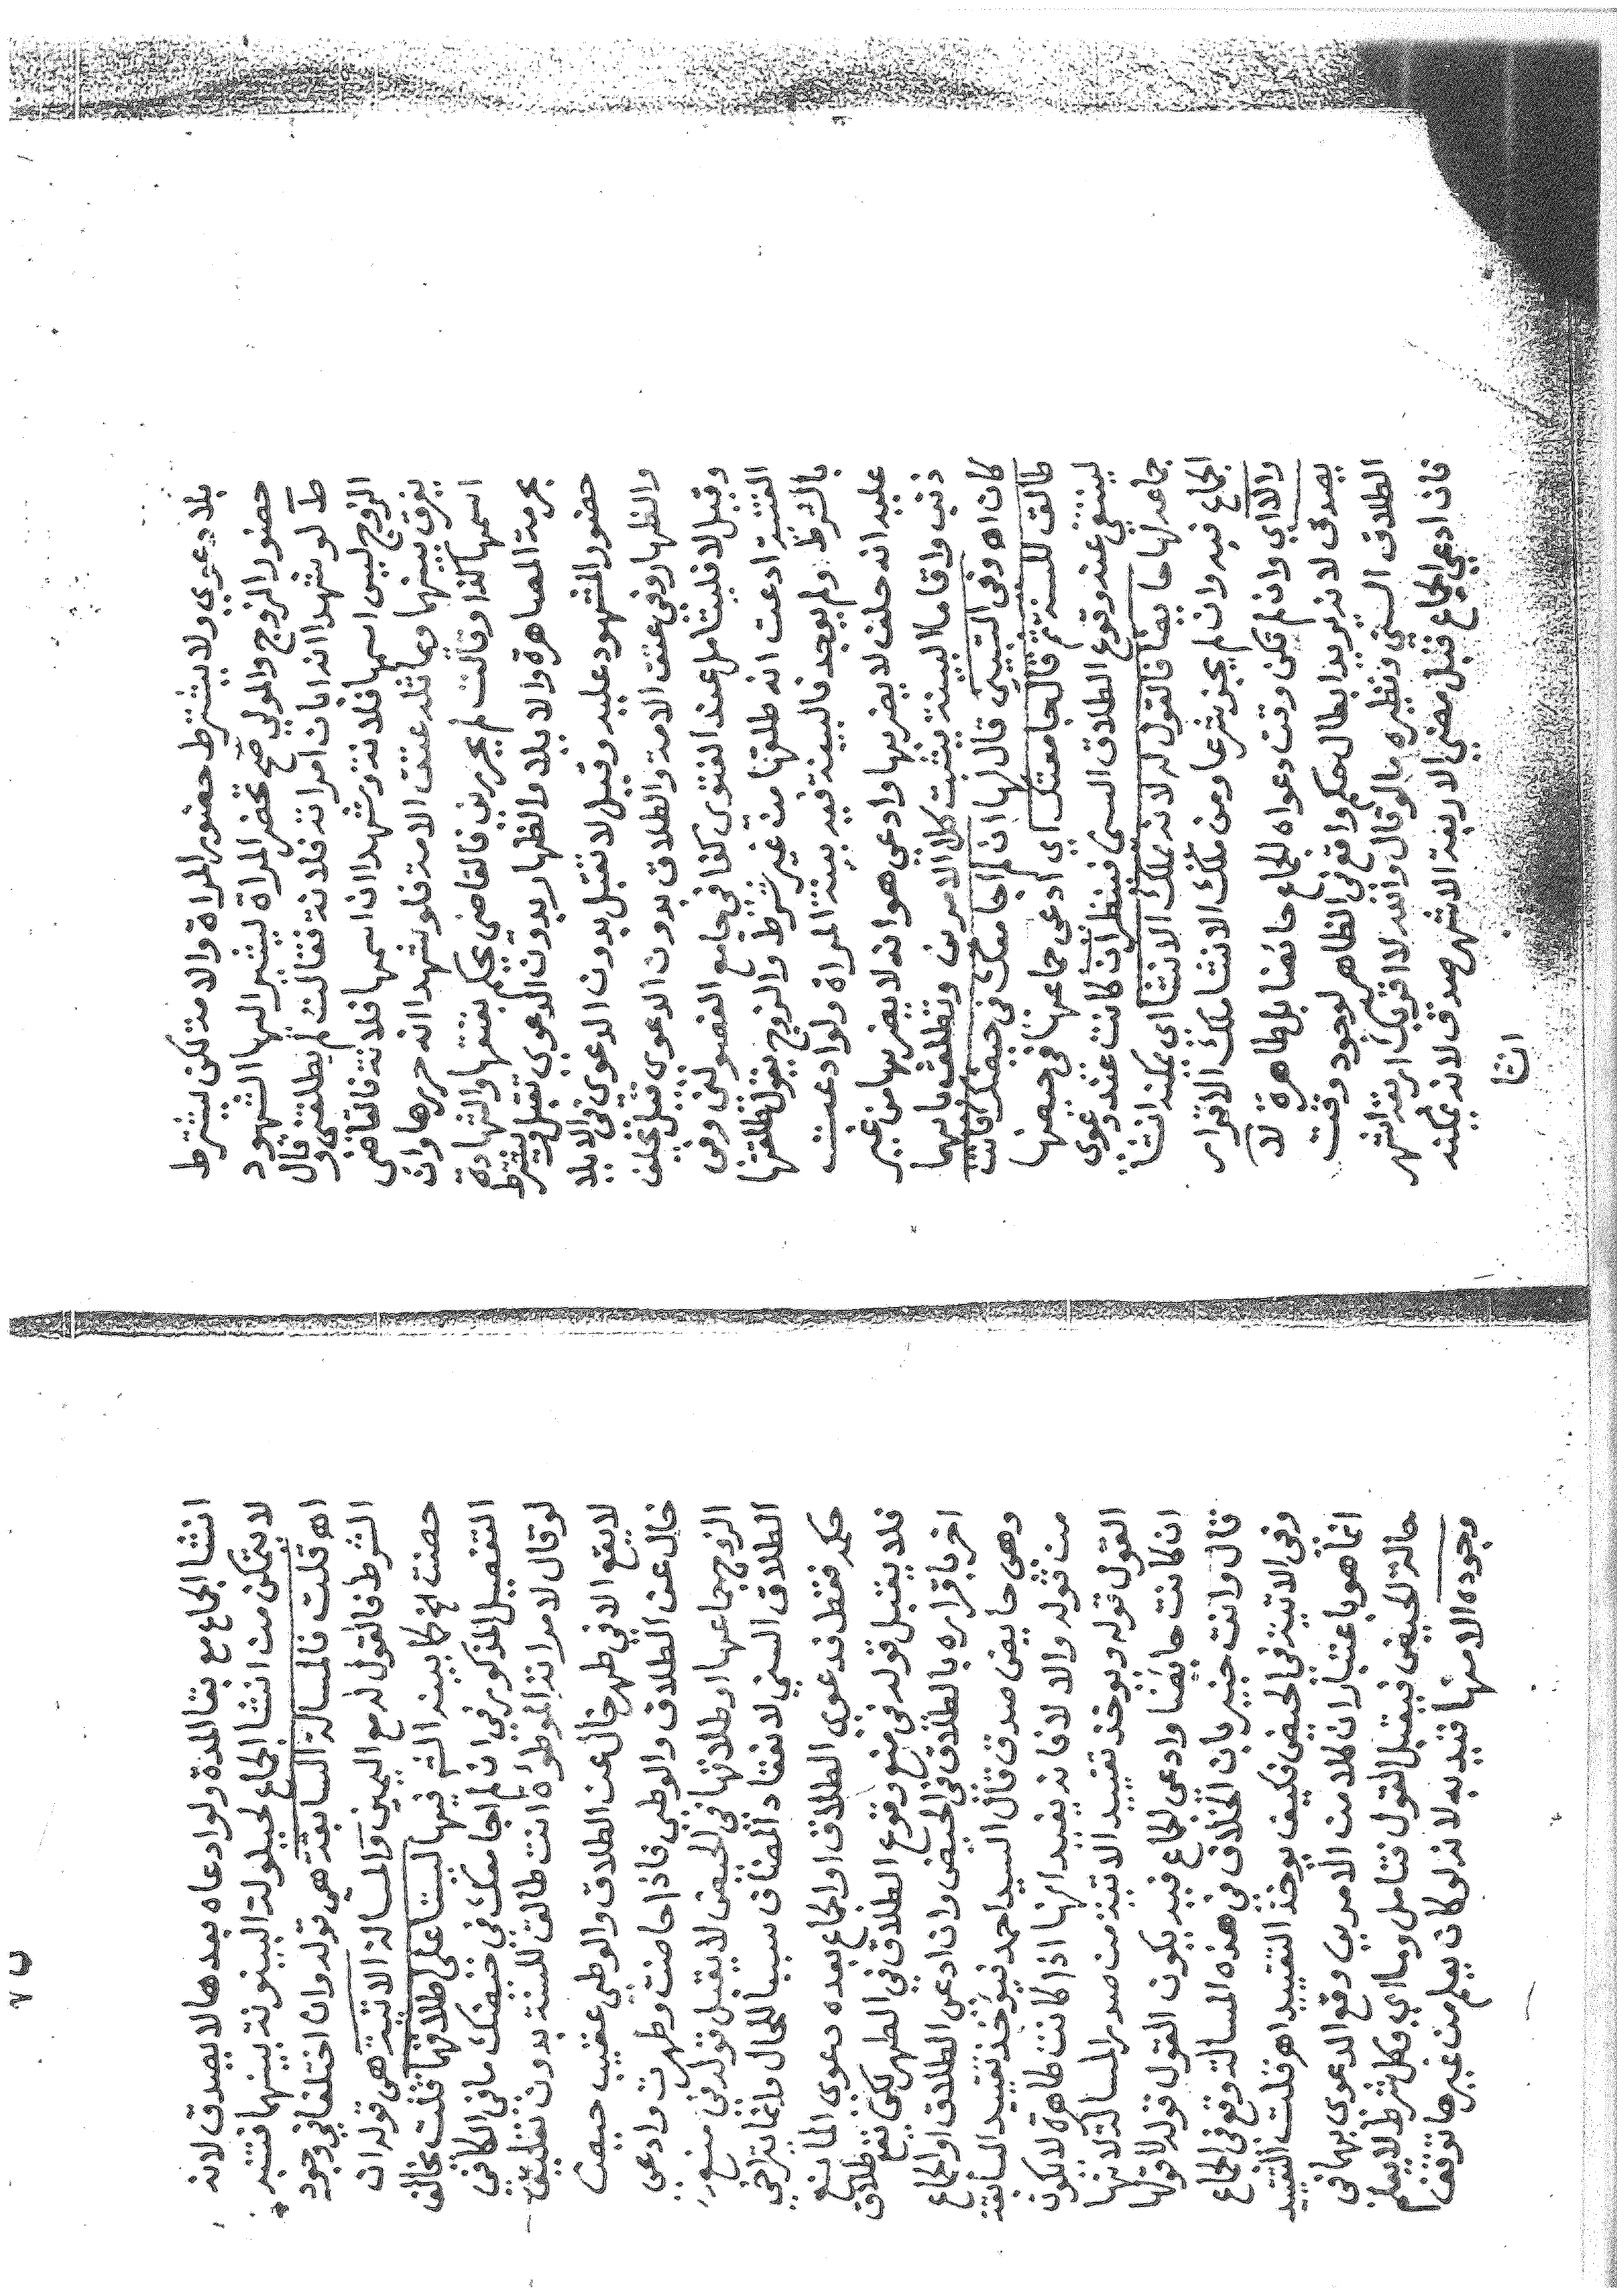 بلا دعوي ولا يشترط حضور المراة والامة لكن يشترط
حضور الزوج والمولي صح تحضر المراة ليشير اليها الشهود
ط لو شهدا انه ابان امراته فلانة فقالت لم يطلقني وقال
الزوج ليس اسمها فلانة وشهدا ان اسمها فلانة فالقاضي
يفرق بينهما وبمثله عتق الامة فلو شهدا انه حررها وان
اسمها كذا وقالت لم يحررني فالقاضي يحكم بعتقها والشهادة
بحرمة المصاهرة والايلا والظهار بدون الدعوى تقبل ويشترط
حضور المشهود عليه وقيل لا تقبل بدون الدعوى في الايلا
والظهار وفي عتق الامة والطلاق بدون الدعوى قيل يحلف
وقيل لا فليتامل عند الفتوى كذا في جامع الفصولين وفي
القنية ادعت انه طلقها من غير شرط والزوج يقول طلقتها
بالشرط ولم يوجد فالبينة فيه بينة المراة ولو ادعت
عليه انه حلف لا يضربها وادعى هو انه لا يضربها من غير
ذنب واقاما البينة يثبت كلا الامرين وتطلق بايهما
كان اه وفي التبيين قال لها ان لم اجامعك في حيضك فانت
طالق للسنة ثم قال جامعتك اي ادعى جماعها في حيضها
لينتفي عنه وقوع الطلاق السني فينظر ان كانت عند دعوى
جماعه لها حايضا فالقول له لانه يملك الانشا اي يمكنه انشا
الجماع فيه وان لم يجز شرعا ومن ملك الانشا ملك الاقرار
والا اي وان لم تكن وقت دعواه الجماع حائضا بل طاهرة لا
يصدق لانه يريد ابطال حكم واقع في الظاهر لوجود وقت
الطلاق السني ونظيره ما لو قال والله لا اقربك اربعة اشهر
فان ادعي الجماع قبل مضي الاربعة الاشهر صدق لانه يمكنه
انشا
انشا الجماع مع بقا المدة ولو ادعاه بعدها لا يصدق لانه
لا يتمكن من انشا الجماع لحيلولة البينونة بينهما فتنبه
اه قلت فالمسالة السابقة هي قوله وان اختلفا في وجود
الشرط فالقول له مع اليمين والمسالة الاتية هي قوله ان
حضت الخ كما بينه الشم فيها ليستا على اطلاقهما قلت يخالف
التفصيل المذكور في ان لم اجامعك في حيضك ما في الكافي
لو قال لامراته الموطؤة انت طالق للسنة بدون تعليق
لا يقع الا في طهر خال عن الطلاق والوطي عقيب حيض
خال عن الطلاق والوطي فاذا حاضت وطهرت وادعى
الزوج جماعها او طلاقها في الحيض لا يقبل قوله في منع
الطلاق السني لانعقاد المضاف سببا للحال وانما يتراخي
حكمه فقط فدعوى الطلاق او الجماع بعده دعوى المانع
فلا يقبل قوله في منع وقوع الطلاق في الطهر لكن يقع طلاق
اخر باقراره بالطلاق في الحيض وان ادعى الطلاق او الجماع
وهي حايض صدق قال السيد احمد فيؤخذ تقييد السابقة
من قوله والا لا فانه يفيد انها اذا كانت طاهرة لا يكون
القول قوله ويوخذ تقييد الاتية من صدر المسالة لانها
ان كانت حايضا وادعى الجماع فيه يكون القول قوله لا قولها
قال وانت خبير بان الخلاف في هذه المسالة وقع في الجماع
وفي الاتية في الحيض فكيف يوخذ التقييد اهـ قلت التقييد
انما هو باعتبار ان كلا من الامرين وقع الدعوى بهما في
حالة الحيض فيقبل القول فتامل وما اي وكل شرط لا يعلم
وجوده الا منها قيد به لانه لو كان يعلم من غيرها توقف